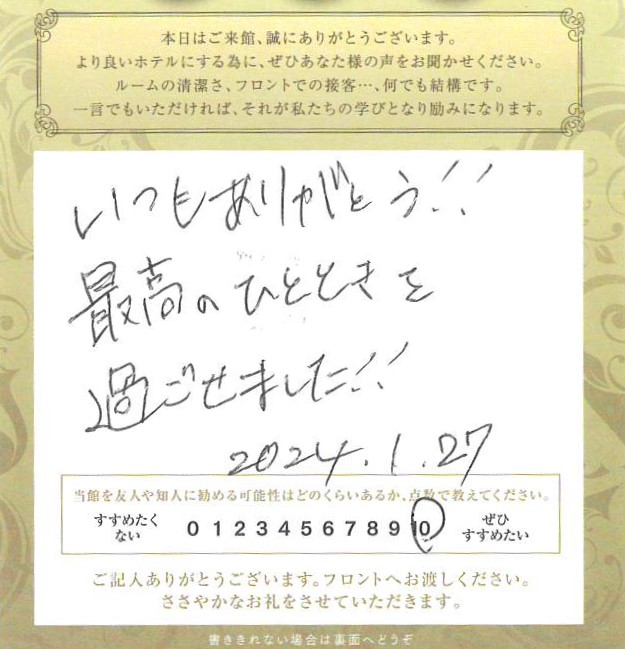 本日はご来館、誠にありがとうございます。
より良いホテルにする為に、ぜひあなた様の声をお聞かせください。
ルームの清潔さ、フロントでの接客…、何でも結構です。
一言でもいただければ、それが私たちの学びとなり励みになります。
いつもありがとう!!
最高のひとときを
過ごせました!!
2024.1.27
当館を友人や知人に勧める可能性はどのくらいあるか、点数で教えてください。
すすめたく
ない
0 1 2 3 4 5 6 7 8 9 10
ぜひ
すすめたい
ご記入ありがとうございます。フロントへお渡しください。
ささやかなお礼をさせていただきます。
書ききれない場合は裏面へどうぞ